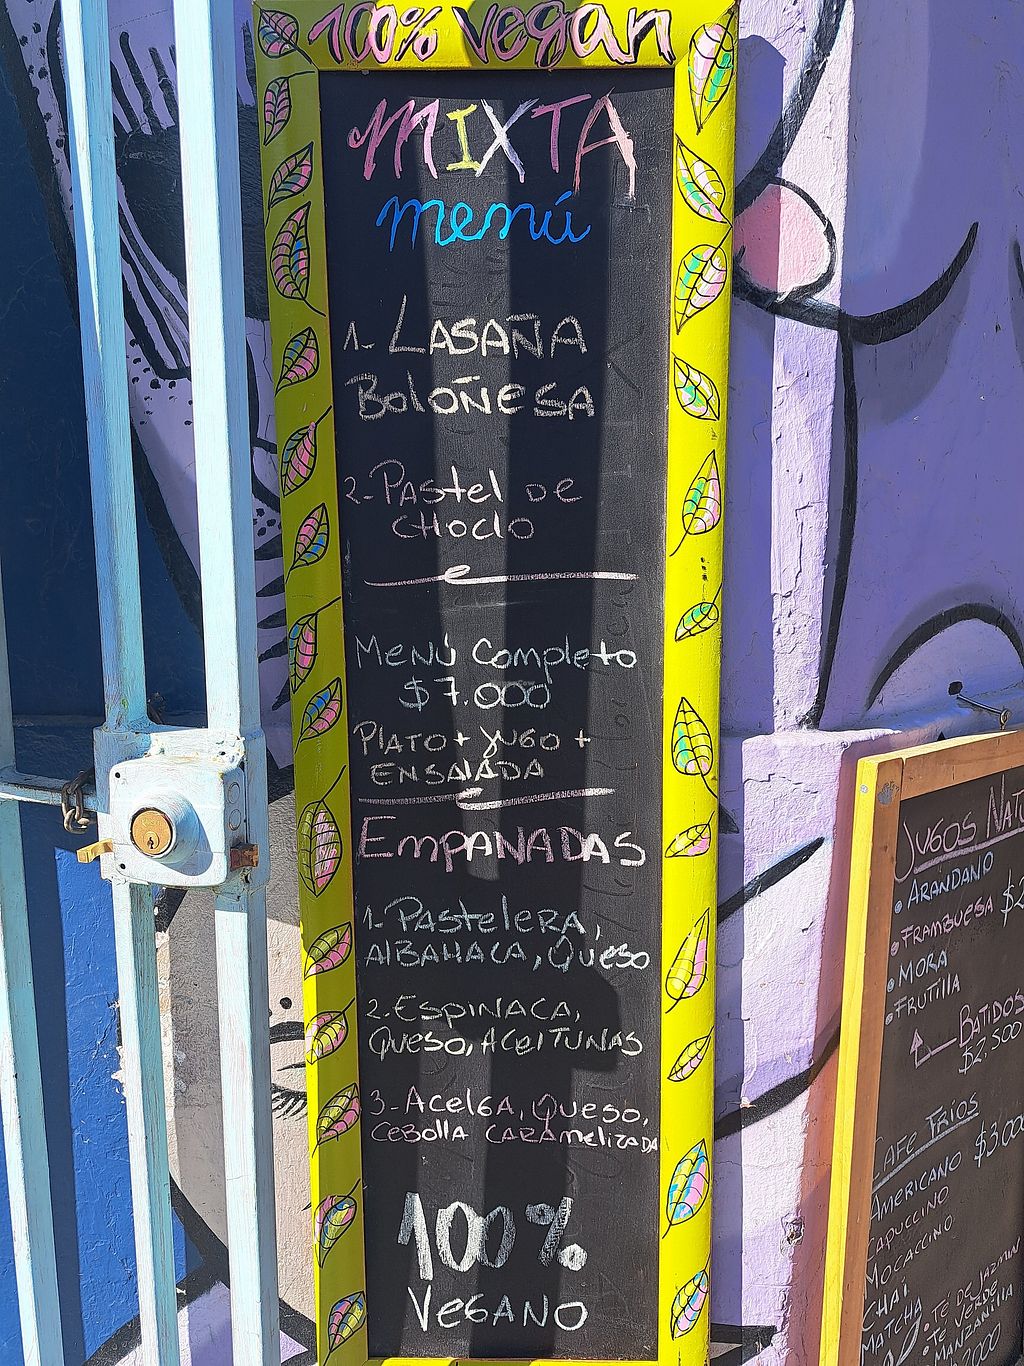 100% vegan
MIXTA
menú
1. LASAÑA
BoloÑESA
2-PAStel DE
CHOClO
MENÚ Completo
$7.000
PlATO + JUGO +
ENSALADA
EMPANADAS
1. PASTELERA,
AlBAHACA, QUESO
2. ESPINACA,
QUESO, ACEITUNAS
3-ACElGA, QUESO,
CEBOllA CARAMElIZADA
100%
VEGANO
JUGOS
• ARANDANO
• FRAMBUESA
• MORA
• FRUTIllA
BATIDOS
$2.500
CAFE FRÍOS
$3.000
AMERICANO
CAPUCCINO
MOCACCINO
CHAI
MATCHA
• TÉ DE JAZMIN
• TÉ VERDE
• MANZANIllA